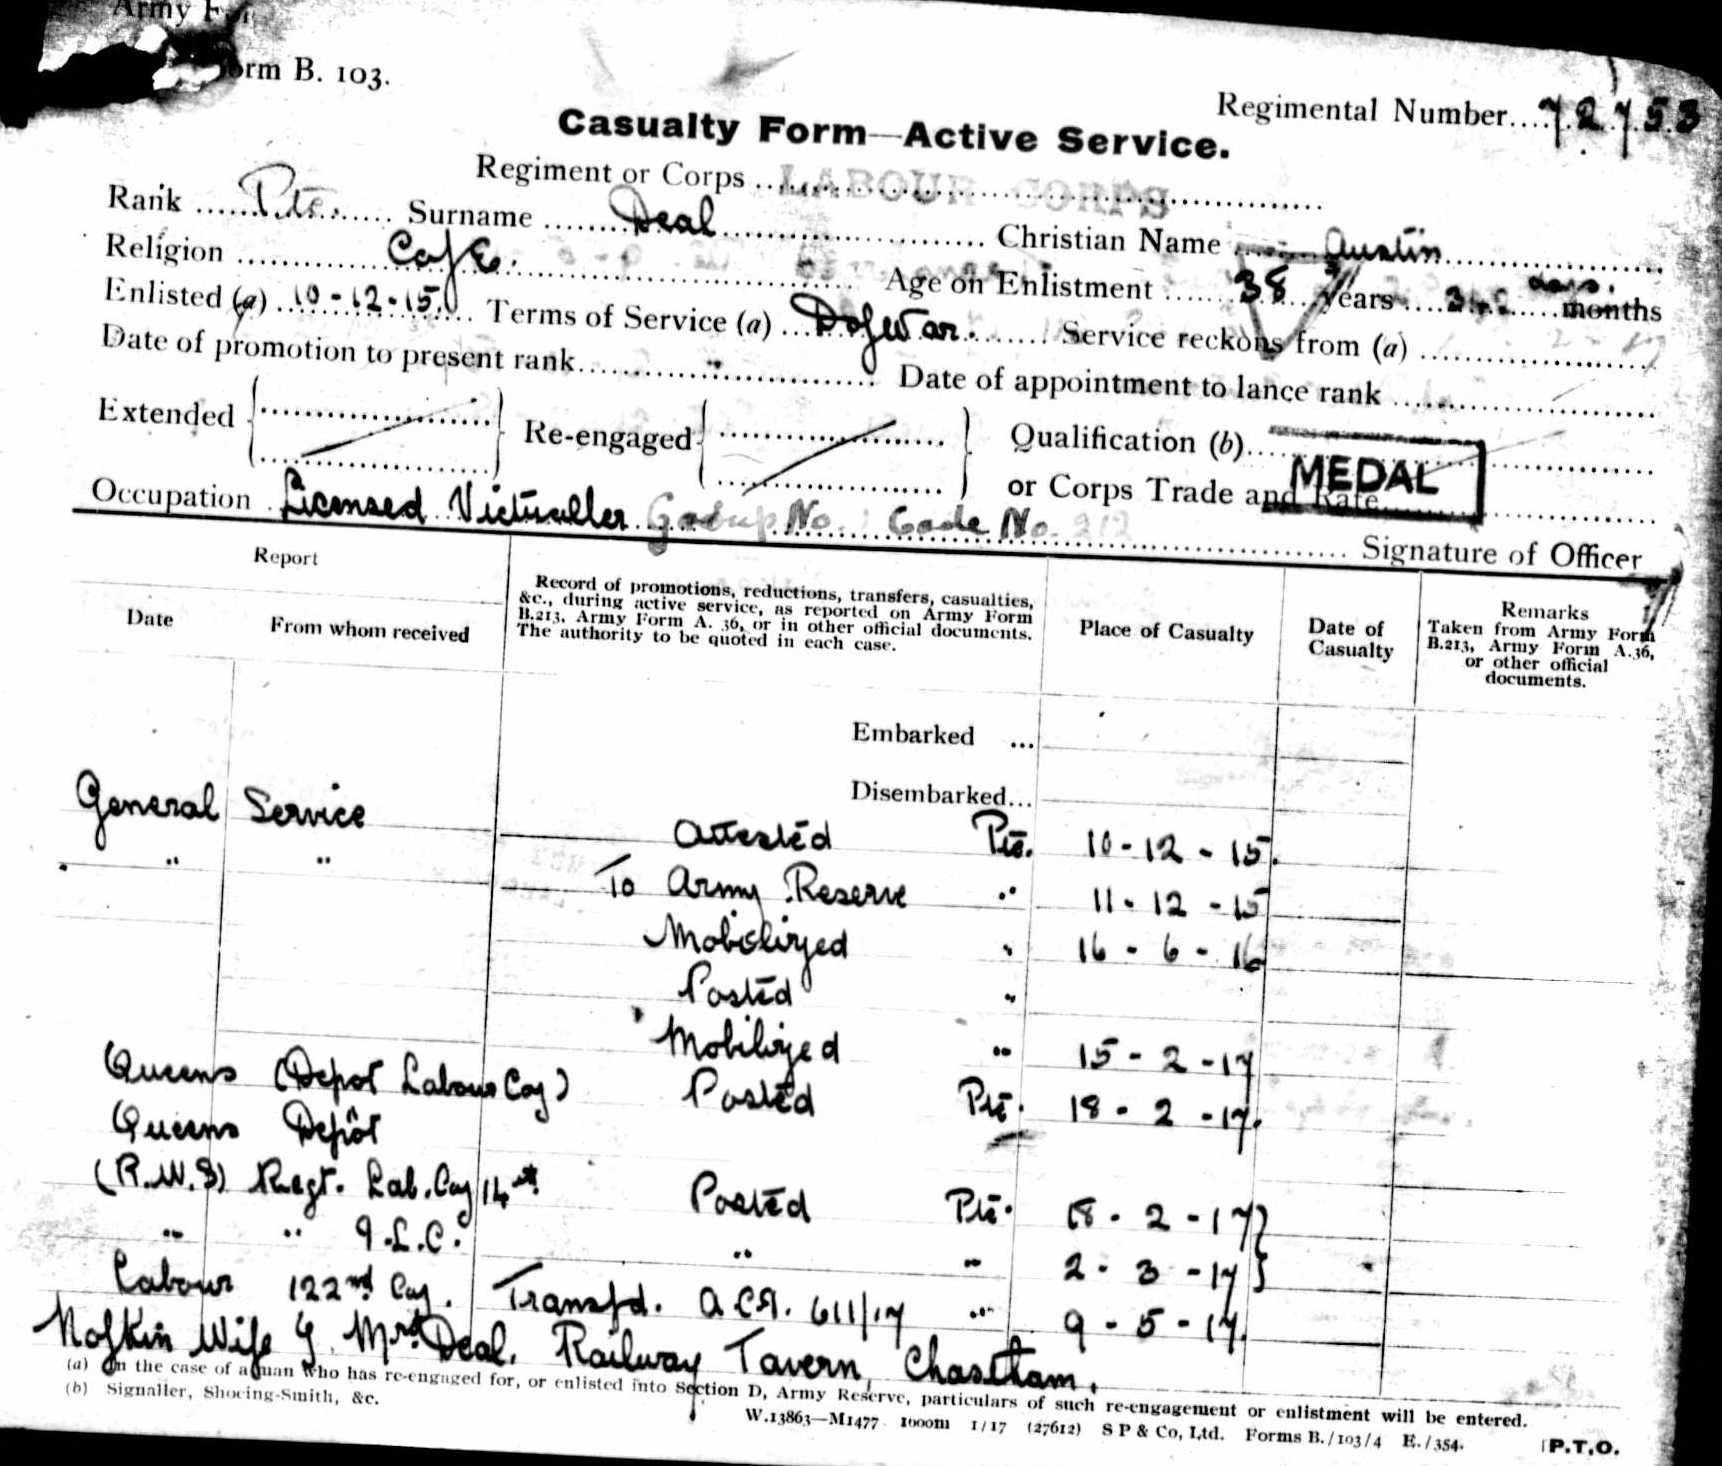 Army
orm B. 103.
Regimental Number....72753
Casualty Form—Active Service.
Regiment or Corps LABOUR CORPS
Rank Pte. Surname Deal Christian Name Austin
Religion C of E. Age on Enlistment 38 years 3 days. months
Enlisted (a) 10-12-15. Terms of Service (a) D of War. Service reckons from (a)
Date of promotion to present rank Date of appointment to lance rank
Extended Re-engaged Qualification (b)
or Corps Trade and Rate
MEDAL
Occupation Licensed Victualler Group No. Code No. 212
Signature of Officer
Report
Date From whom received
Record of promotions, reductions, transfers, casualties,
&c., during active service, as reported on Army Form
B.213, Army Form A. 36, or in other official documents.
The authority to be quoted in each case.
Place of Casualty
Date of
Casualty
Remarks
Taken from Army Form
B.213, Army Form A.36,
or other official
documents.
Embarked ...
Disembarked...
General Service Attested Pte. 10-12-15.
" " To Army Reserve " 11-12-15
Mobilized " 16-6-16
Posted "
Mobilized " 15-2-17
Queens (Depot Labour Coy) Posted Pte. 18-2-17.
Queens Depôt
(R.W.S) Regt. Lab. Coy 14th Posted Pte. 18-2-17
" " 9.L.C. " " 2-3-17
Labour 122nd Coy. Transfd. A.C.I. 611/17 " 9-5-17.
N of Kin Wife Mrs Deal, Railway Tavern, Chastham.
(a) In the case of a man who has re-engaged for, or enlisted into Section D, Army Reserve, particulars of such re-engagement or enlistment will be entered.
(b) Signaller, Shoeing-Smith, &c.
W.13863—M1477 1000m 1/17 (27612) S P & Co, Ltd. Forms B./103/4 E./354.
P.T.O.